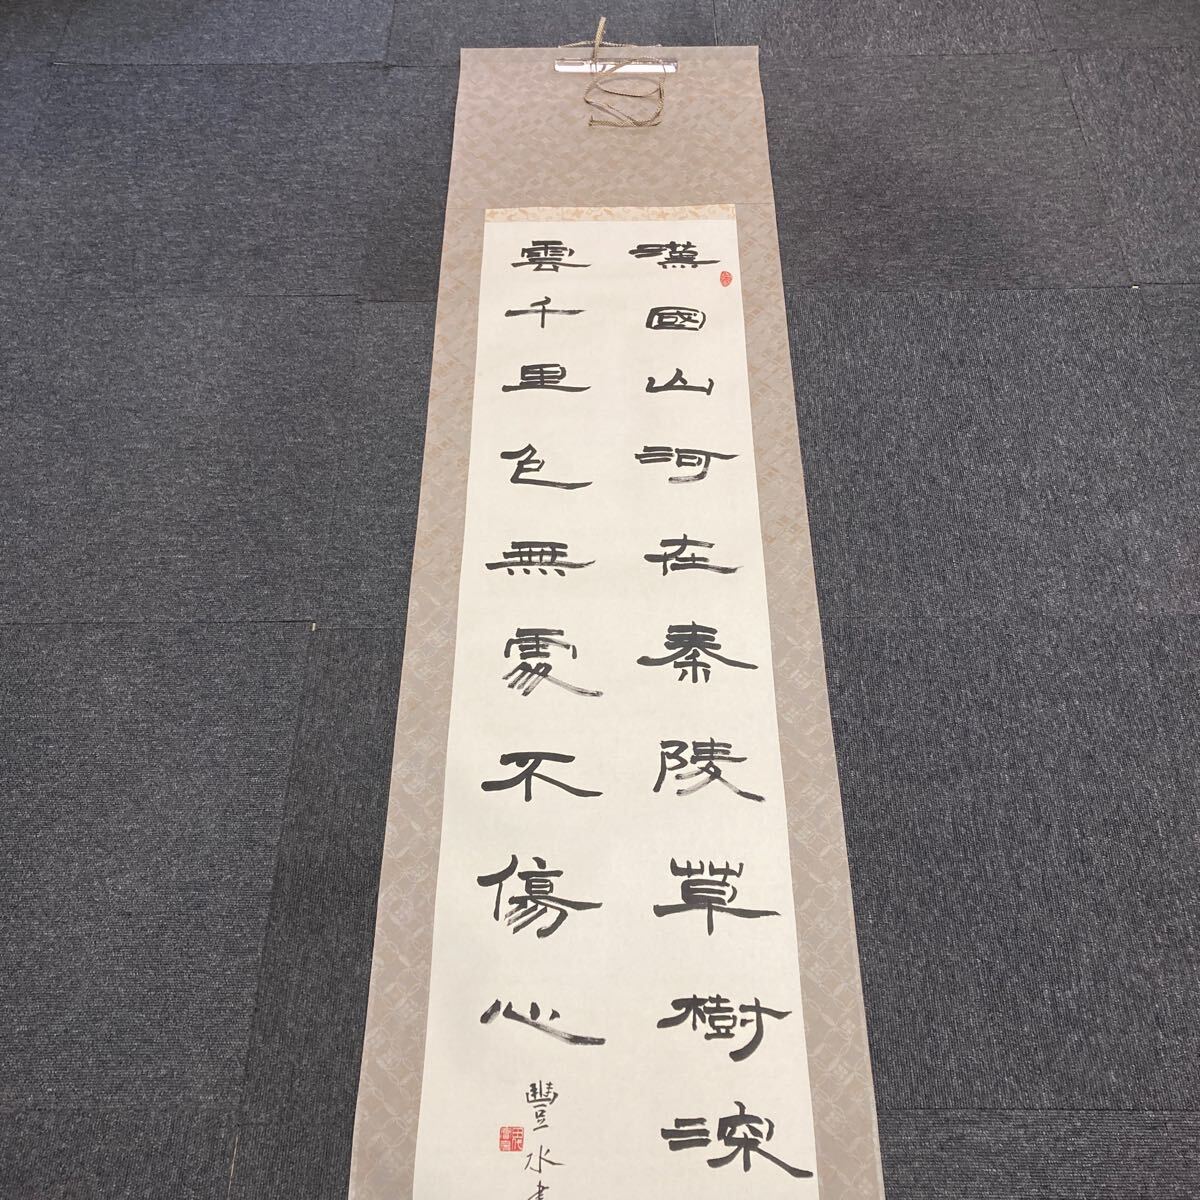 漢國山河在秦陵草樹深
雲千里色無處不傷心
豐水書